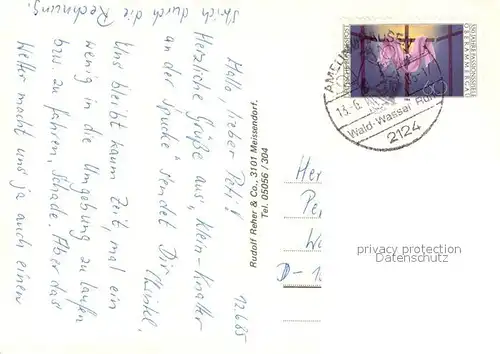 12.6.85
Hallo, lieber Peti!
Herzliche Grüße aus „Klein-Knatter
an der Spucke" sendet Dir
Uns bleibt kaum Zeit, mal ein
wenig in die Umgebung zu laufen
bzw. zu fahren. Schade. Aber das
Wetter macht uns ja auch einen
Strich durch die Rechnung.
Rudolf Reher & Co., 3101 Meissendorf.
Tel. 05056 / 304
DEUTSCHE BUNDESPOST
OBERAMMERGAU
60
AMELINGHAUSEN
13.-6.
Wald-Wasser
2124
D-
privacy protection
Datenschutz